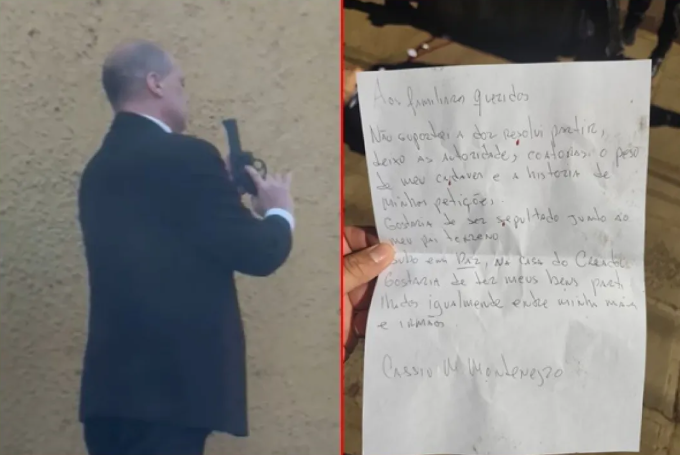 Aos familiares queridos
Não suportei a dor resolvi partir,
deixo as autoridades, contorias, o peso
de meu cadaver e a historia de
minhas petições.
Gostaria de ser sepultado junto ao
meu pai terreno
em Paz, na casa do Creador
Gostaria de ter meus bens parti
lhados igualmente entre minha mãe
e irmãos
Cassio M Montenegro